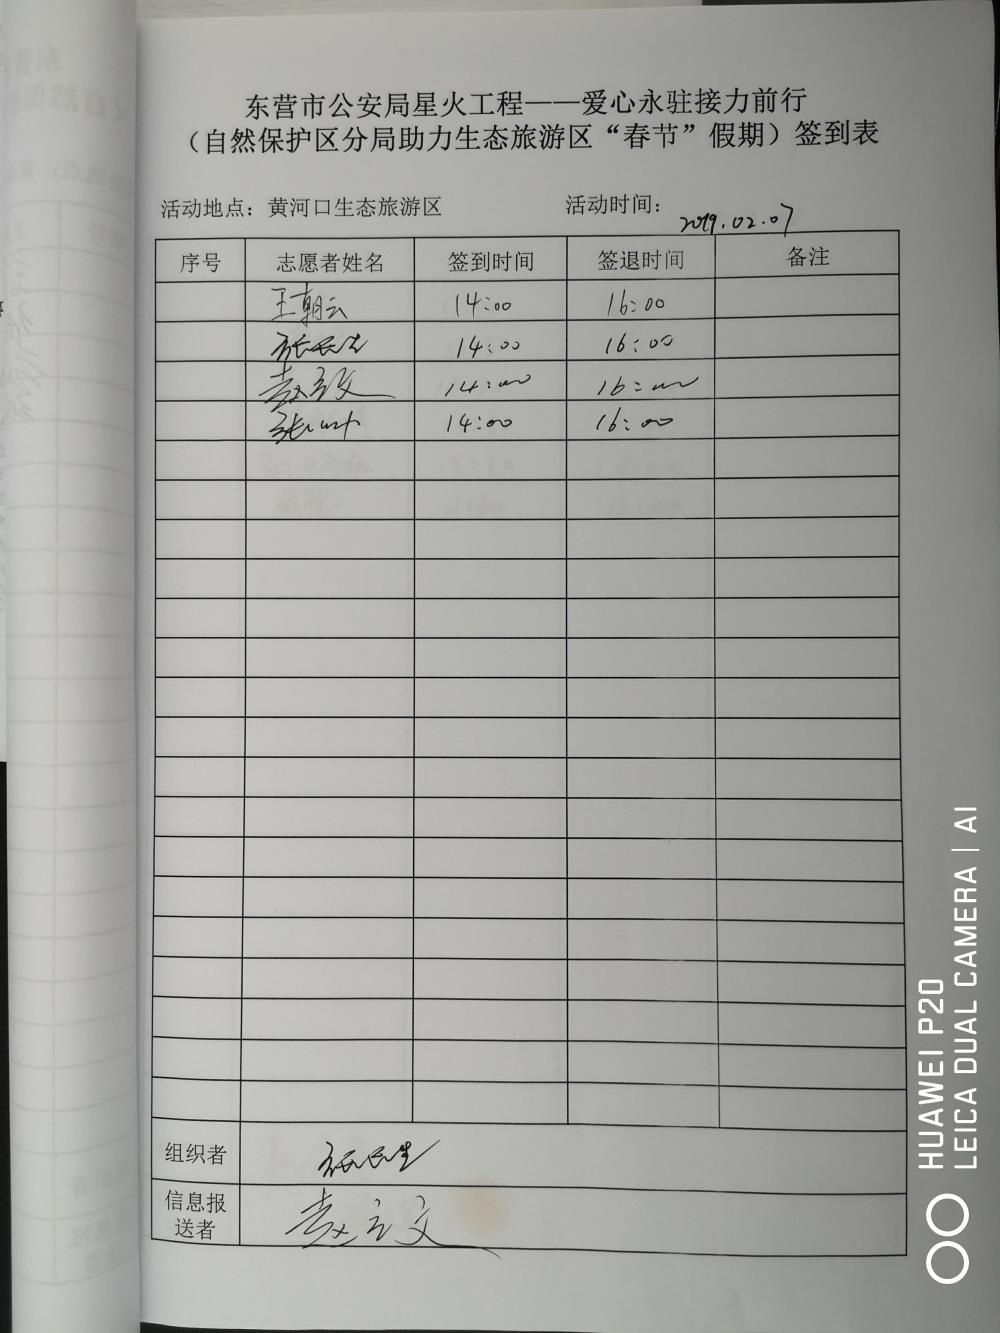 东营市公安局星火工程——爱心永驻接力前行
（自然保护区分局助力生态旅游区“春节”假期）签到表
活动地点：黄河口生态旅游区 活动时间：2019.02.07
序号 志愿者姓名 签到时间 签退时间 备注
王朝云 14:00 16:00
张民生 14:00 16:00
赵立文 14:00 16:00
张 14:00 16:00
组织者 张民生
信息报
送者 赵立文
HUAWEI P20
LEICA DUAL CAMERA | AI